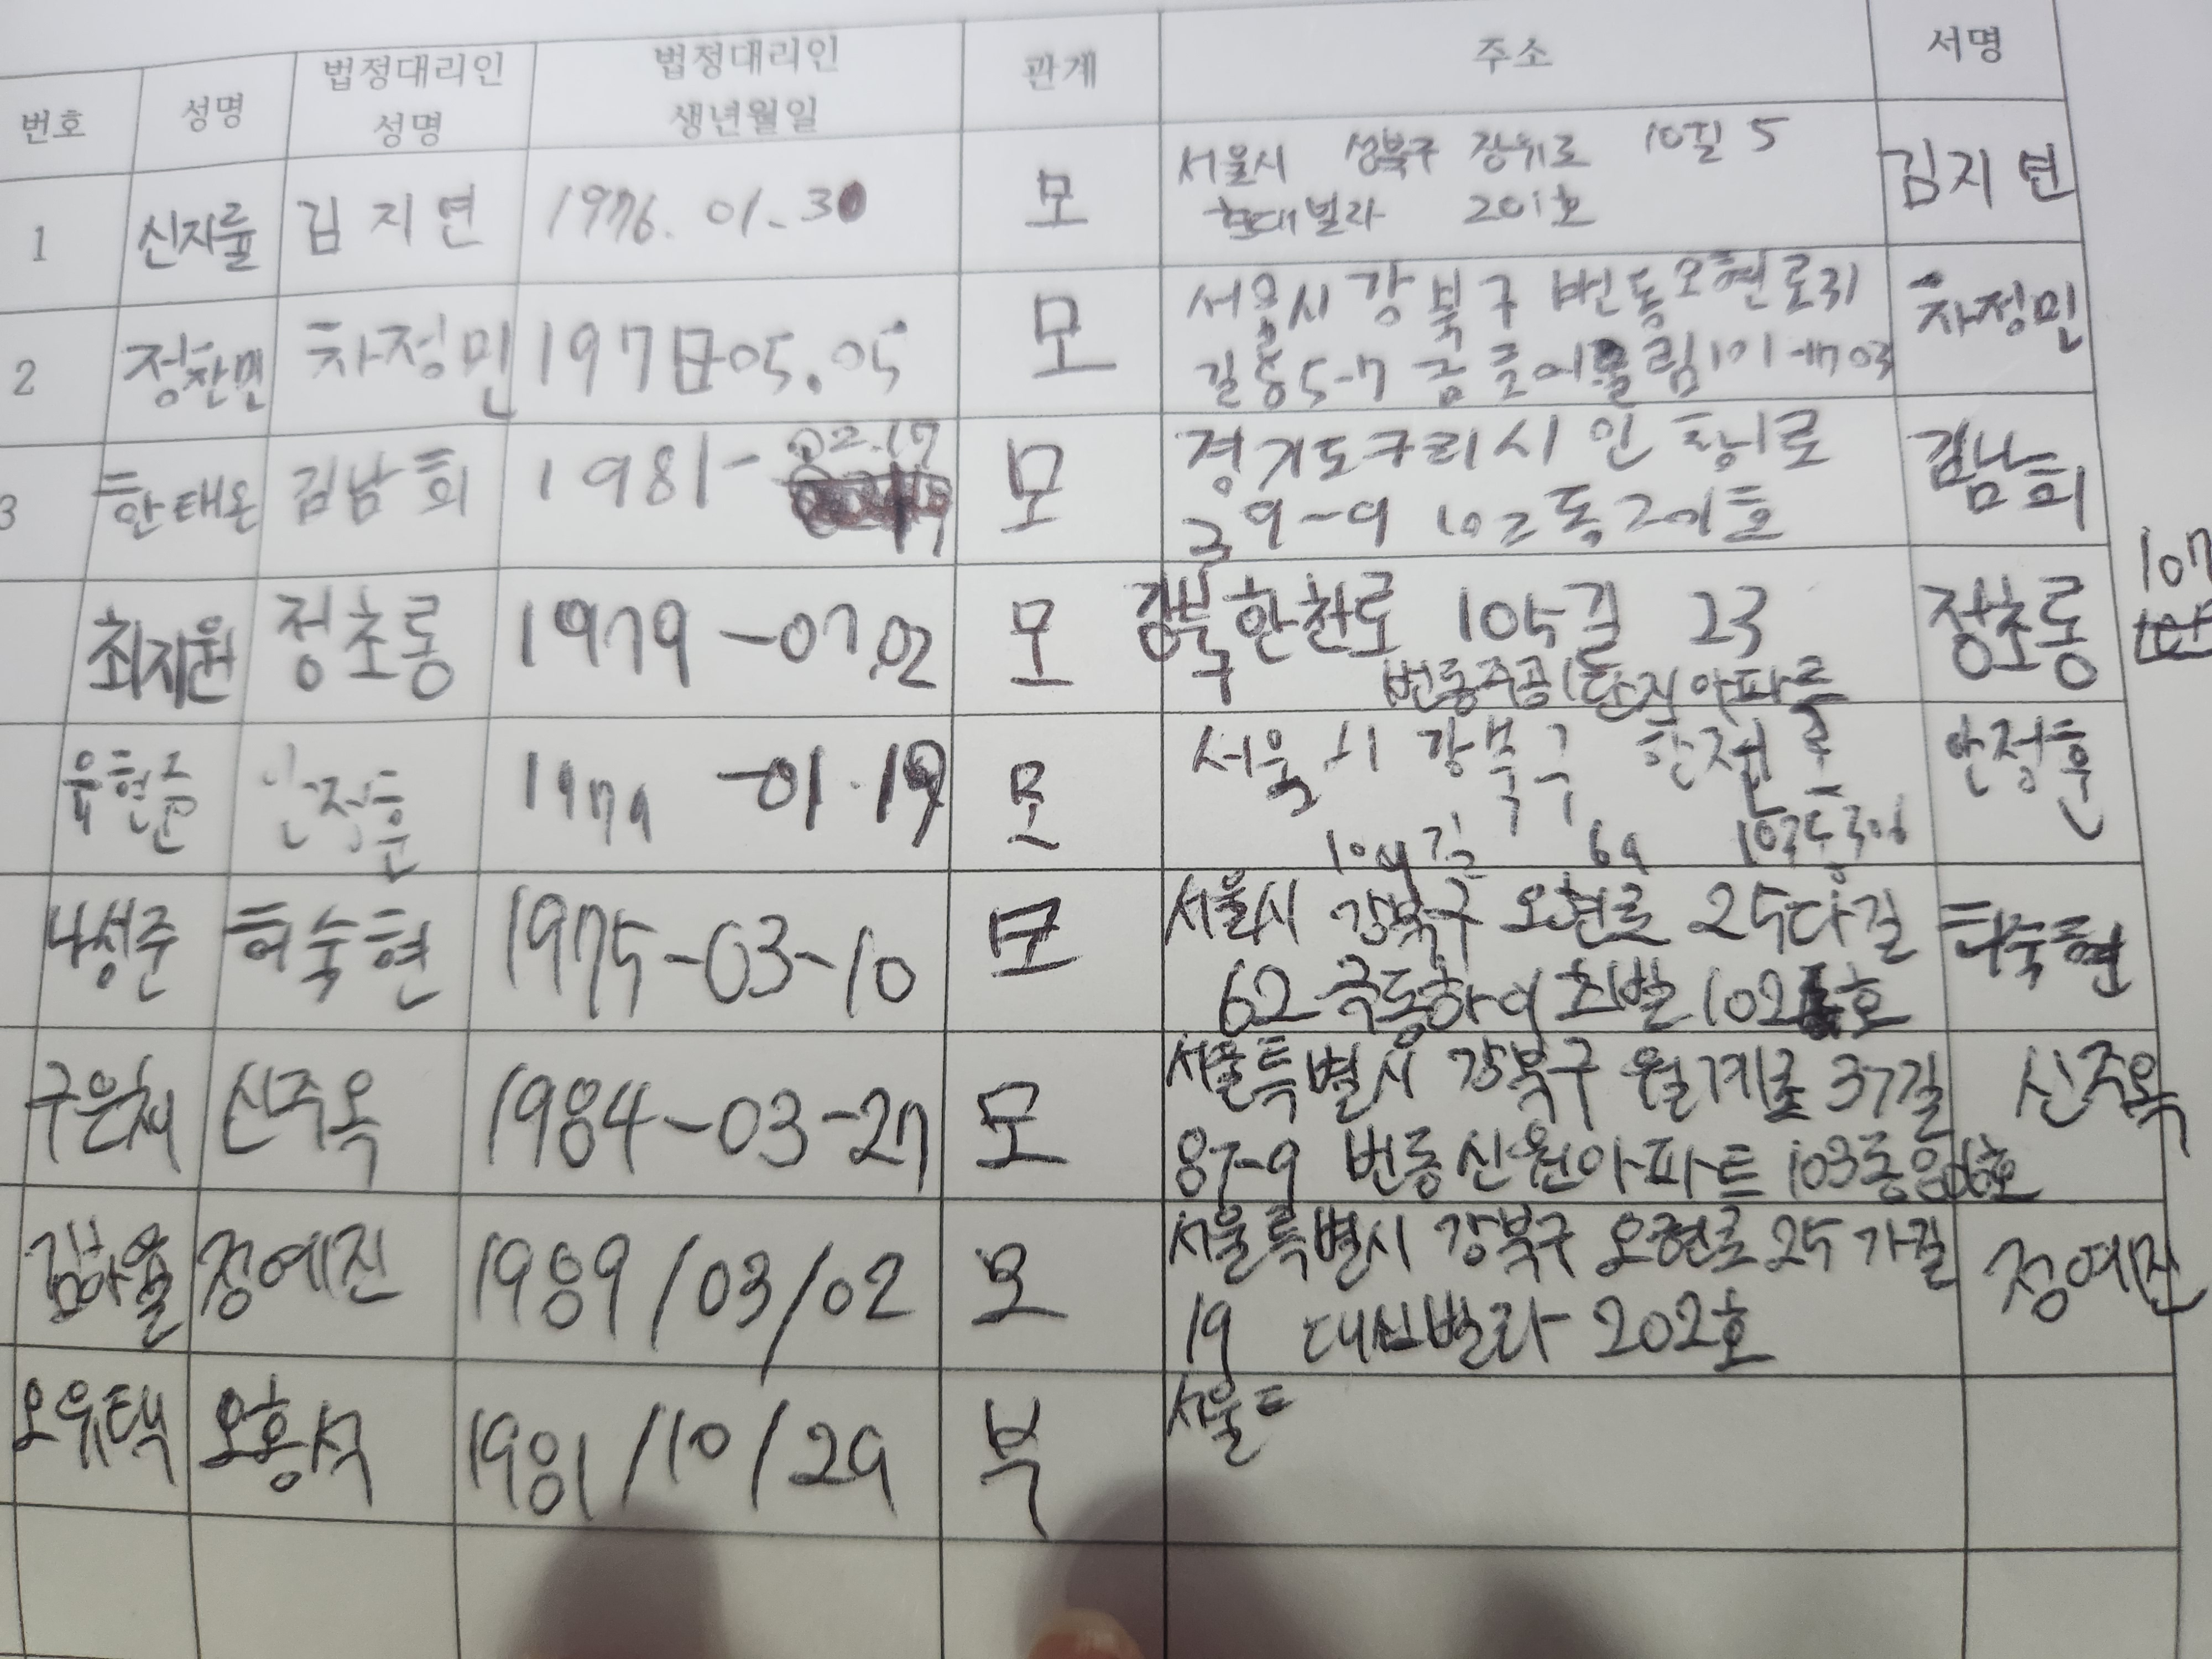 번호 성명 법정대리인 성명 법정대리인 생년월일 관계 주소 서명
1 신지율 김지연 1976. 01. 30 모 서울시 성북구 장위로 10길 5 김지연
현대빌라 201호
2 정찬민 차정민 197 05.05 모 서울시 강북구 번동 오현로31 차정민
길 5-7 금호어울림 101-1703
3 한태온 김남희 1981- 02.17 모 경기도 구리시 인창1로 김남희
39-9 102동 201호
최지원 정초롱 1979-07.02 모 강북구 한천로 105길 23 정초롱 107
번동주공1단지아파트
유현준 안정훈 1979 -01.19 모 서울시 강북구 한천로 안정훈
길 69
나성준 허숙현 1975-03-10 모 서울시 강북구 오현로 25다길 허숙현
62 극동하이츠빌 102호
구은채 신주옥 1984-03-27 모 서울특별시 강북구 월계로 37길 신주옥
87-9 번동신원아파트 103동
김하율 정예진 1989/03/02 모 서울특별시 강북구 오현로 25가길 정예진
19 대신빌라 202호
오유택 오홍석 1981/10/29 부 서울ㅌ